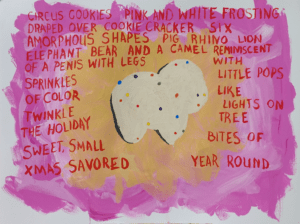 CIRCUS COOKIES PINK AND WHITE FROSTING
DRAPED OVER COOKIE CRACKER SIX
AMORPHOUS SHAPES PIG RHINO LION
ELEPHANT BEAR AND A CAMEL REMINISCENT
OF A PENIS WITH LEGS WITH
SPRINKLES LITTLE POPS
OF COLOR LIKE
TWINKLE LIGHTS ON
THE HOLIDAY TREE
SWEET, SMALL BITES OF
XMAS SAVORED YEAR ROUND